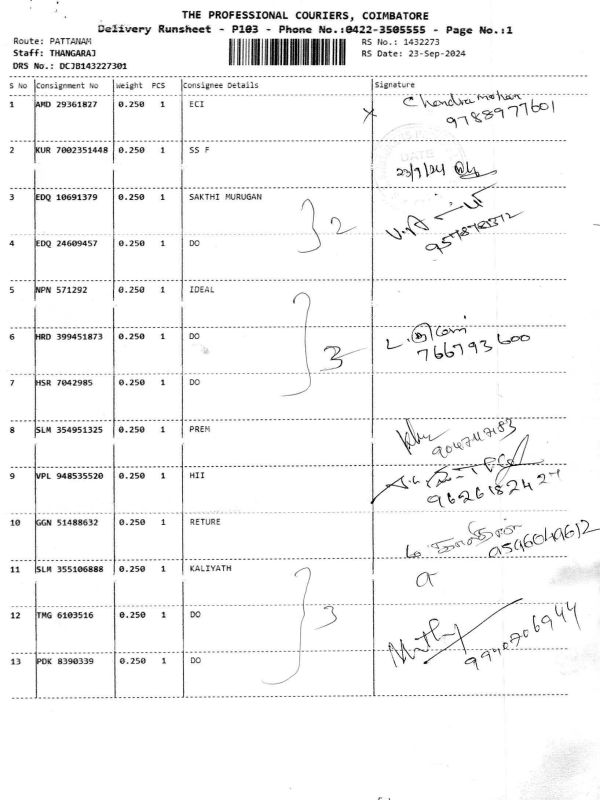 THE PROFESSIONAL COURIERS, COIMBATORE
Delivery Runsheet - P103 - Phone No.:0422-3505555 - Page No.:1
Route: PATTANAM
RS No.: 1432273
Staff: THANGARAJ
RS Date: 23-Sep-2024
DRS No.: DCJB143227301
S No Consignment No Weight PCS Consignee Details Signature
1 AMD 29361827 0.250 1 ECI Chandramohan
9788977601
2 KUR 7002351448 0.250 1 SS F
DATE
23/9/24
3 EDQ 10691379 0.250 1 SAKTHI MURUGAN
2
4 EDQ 24609457 0.250 1 DO
5 NPN 571292 0.250 1 IDEAL
6 HRD 399451873 0.250 1 DO
3 766793600
7 HSR 7042985 0.250 1 DO
8 SLM 354951325 0.250 1 PREM
9 VPL 948535520 0.250 1 HII
9626182424
10 GGN 51488632 0.250 1 RETURE
11 SLM 355106888 0.250 1 KALIYATH
12 TMG 6103516 0.250 1 DO
3
9940706944
13 PDK 8390339 0.250 1 DO